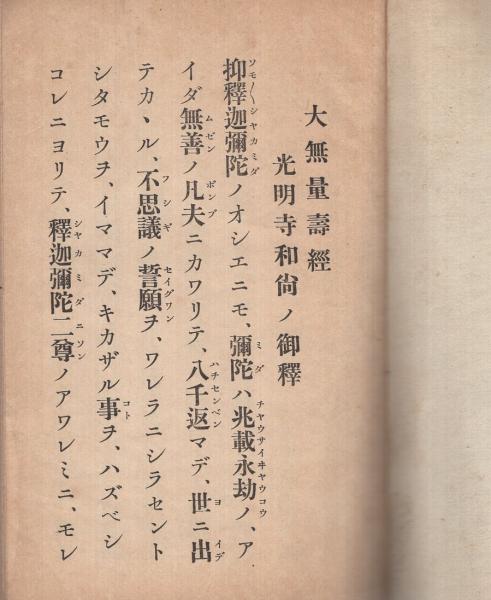 大無量壽經
光明寺和尙ノ御釋
抑釋迦彌陀ノオシエニモ、彌陀ハ兆載永劫ノ、ア
イダ無善ノ凡夫ニカワリテ、八千返マデ、世ニ出
テカヽル、不思議ノ誓願ヲ、ワレラニシラセント
シタモウヲ、イママデ、キカザル事ヲ、ハズベシ
コレニヨリテ、釋迦彌陀二尊ノアワレミニ、モレ